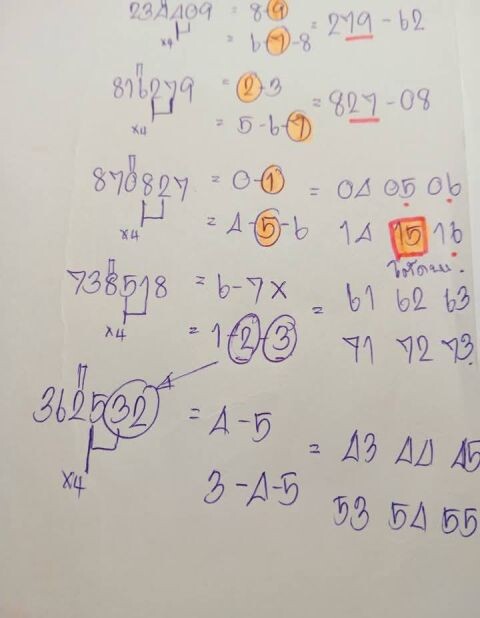 234409 = 8-9 = 279-62
x4 = 6-7-8
ก
816279 = 2-3 = 827-08
x4 = 5-6-7
870827 = 0-1 = 04 05 06
x4 = 4-5-6 14 15 16
738518 = 6-7x = 61 62 63
x4 = 1-2-3 71 72 73
ก
362532 = 4-5 = 43 44 45
x4 3-4-5 53 54 55